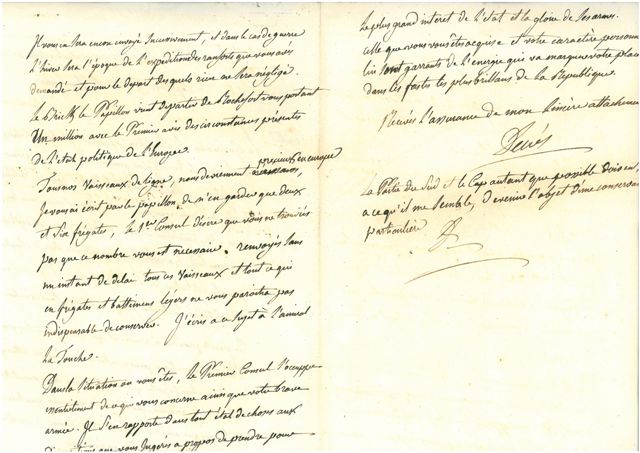 Il vous en sera encore envoyé successivement, et dans le cas de guerre
l'hiver sera l'époque de l'expédition des renforts que vous avez
demandé et pour le départ desquels rien ne sera négligé.
Le brick le Papillon vient de partir de Rochefort vous portant
Un million avec le Premier avis des circonstances présentes
de l'état politique de l'Europe.
Tous nos Vaisseaux de ligne, nous deviennent précieux en europe
Je vous ai écrit par le papillon, de n'en garder que deux
et six frégates, le 1er Consul désire que vous ne trouviés
pas que ce nombre vous est necessaire. renvoyés sans
un instant de delai tous ces Vaisseaux et tout ce qui
en frégates et battimens légers ne vous paroitra pas
indispensable de conserver. J'écris a ce sujet à l'amiral
La Touche.
Dans la situation ou vous êtes, le Premier Consul s'occuppe
essentielement de ce qui vous concerne ainsi que votre brave
armée. Il s'en rapporte dans tout état de choses aux
que vous Jugerés a propos de prendre pour
Le plus grand interet de l'état et la gloire de ses armes.
celle que vous vous êtes acquise et votre caractère personn
lui sont garants de l'énergie qui va marquer votre place
dans les fastes les plus brillans de la République.
Recevés l'assurance de mon sincère attacheme
Decrès
La Partie du Sud et le Cap autant que possible doivent,
a ce qu'il me semble, devenir l'objet d'une conserva
particulière